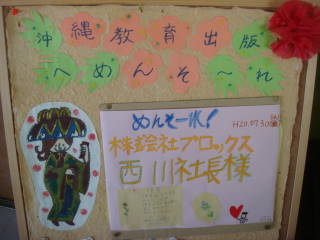 沖縄教育出版
へめんそ〜れ
めんそーれ!
H20.07.30
株式会社ブロックス
西川社長様